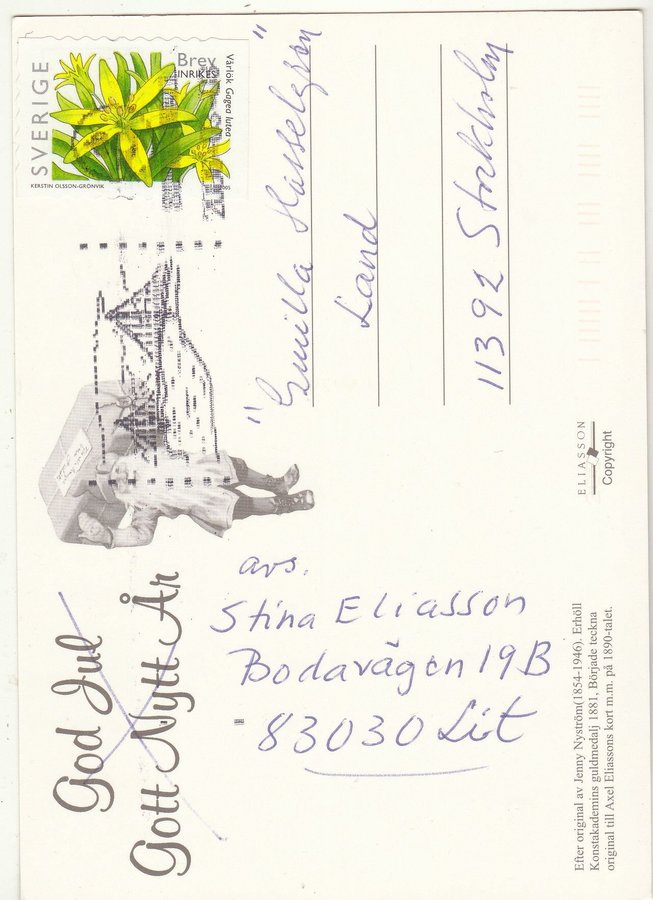 SVERIGE
Brev
INRIKES
Vårlök Gagea lutea
KERSTIN OLSSON-GRÖNVIK
2005
God Jul
Gott Nytt År
"Gunilla Hasselgren"
Land
11392 Stockholm
avs.
Stina Eliasson
Bodavägen 19B
83030 Lit
ELIASSON
Copyright
Efter original av Jenny Nyström(1854-1946). Erhöll
Konstakademins guldmedalj 1881, Började teckna
original till Axel Eliassons kort m.m. på 1890-talet.